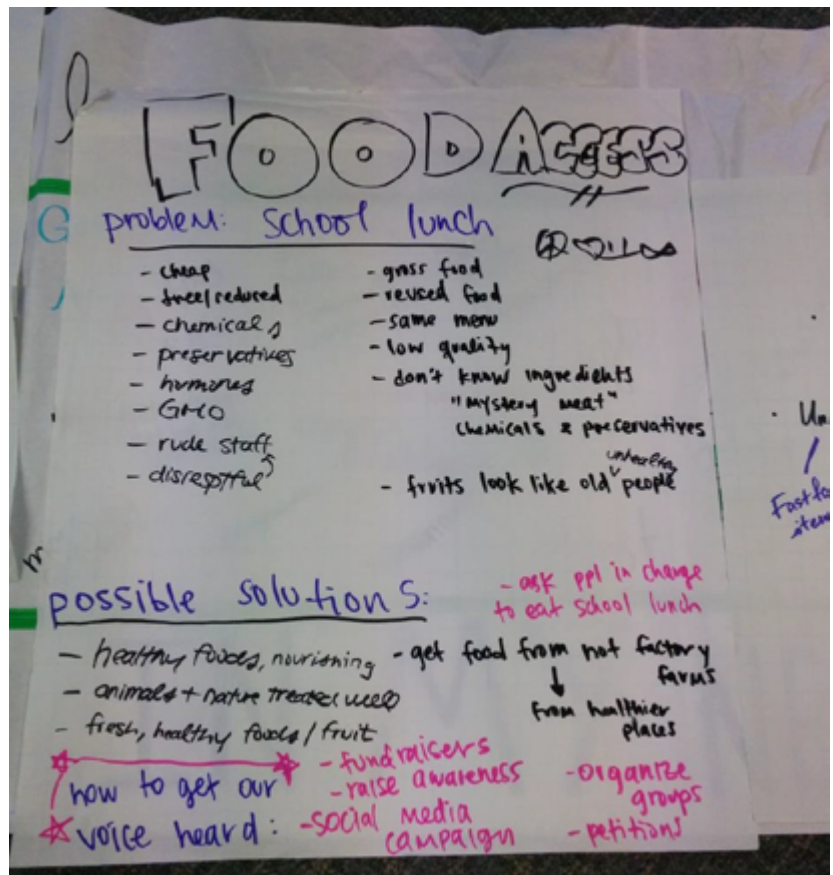 FOOD ACCESS
problem: school lunch
- cheap
- free/reduced
- chemicals
- preservatives
- hormones
- GMO
- rude staff
- disresptful
- gross food
- reused food
- same menu
- low quality
- don't know ingredients
"mystery meat"
chemicals & preservatives
- fruits look like old unhealthy people
possible solutions:
- ask ppl in charge
to eat school lunch
- healthy foods, nourishing
- animals + nature treated well
- fresh, healthy foods / fruit
- get food from not factory
farms
from healthier
places
how to get our
voice heard:
- fundraisers
- raise awareness
- social media
campaign
- organize
groups
- petitions
G
m
Un
Fast fo
item